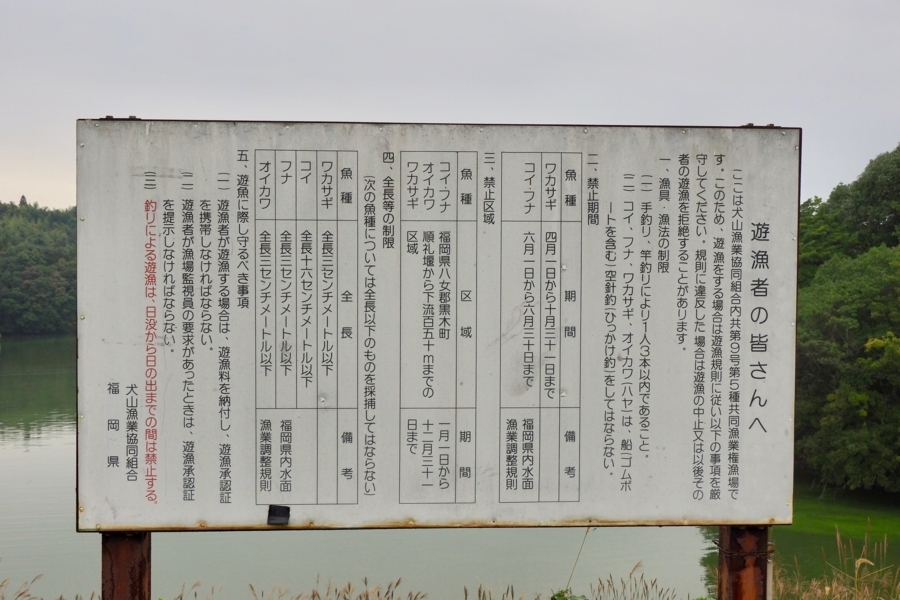 遊漁者の皆さんへ
ここは犬山漁業協同組合内共第9号第5種共同漁業権漁場で
す。このため、遊漁をする場合は遊漁規則に従い以下の事項を厳
守してください。規則に違反した場合は遊漁の中止又は以後その
者の遊漁を拒絶することがあります。
一、漁具・漁法の制限
(一) 手釣り、竿釣りにより1人3本以内であること。
(二) コイ、フナ、ワカサギ、オイカワ(ハヤ)は、船(ゴムボ
ートを含む)空針釣(ひっかけ釣)をしてはならない。
二、禁止期間
魚種 期間 備考
ワカサギ 四月一日から十月三十一日まで
コイ・フナ 六月一日から六月三十日まで 福岡県内水面
漁業調整規則
三、禁止区域
魚種 区域 期間
コイ・フナ 福岡県八女郡黒木町 一月一日から
オイカワ 順礼堰から下流百五十mまでの 十二月三十一
ワカサギ 区域 日まで
四、全長等の制限
(次の魚種については全長以下のものを採捕してはならない)
魚種 全長 備考
ワカサギ 全長三センチメートル以下
コイ 全長十六センチメートル以下
フナ 全長三センチメートル以下 福岡県内水面
オイカワ 全長三センチメートル以下 漁業調整規則
五、遊魚に際し守るべき事項
(一) 遊漁者が遊漁する場合は、遊漁料を納付し、遊漁承認証
を携帯しなければならない。
(二) 遊漁者が漁場監視員の要求があったときは、遊漁承認証
を提示しなければならない。
(三) 釣りによる遊漁は、日没から日の出までの間は禁止する。
犬山漁業協同組合
福岡県